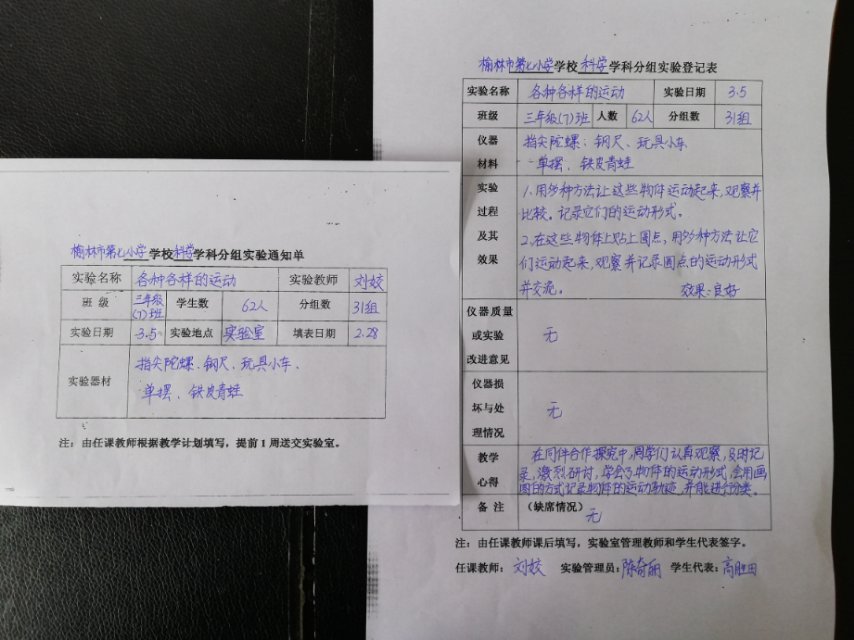 榆林市第七小学学校科学学科分组实验通知单
实验名称 各种各样的运动 实验教师 刘姣
班级 三年级(7)班 学生数 62人 分组数 31组
实验日期 3.5 实验地点 实验室 填表日期 2.28
实验器材 指尖陀螺、钢尺、玩具小车、
单摆、铁皮青蛙
注：由任课教师根据教学计划填写，提前1周送交实验室。
榆林市第七小学学校科学学科分组实验登记表
实验名称 各种各样的运动 实验日期 3.5
班级 三年级(7)班 人数 62人 分组数 31组
仪器材料 指尖陀螺、钢尺、玩具小车
单摆、铁皮青蛙
实验过程及其效果 1.用多种方法让这些物体运动起来,观察并
比较。记录它们的运动形式。
2.在这些物体上贴上圆点，用多种方法让它
们运动起来，观察并记录圆点的运动形式
并交流。 效果：良好
仪器质量或实验改进意见 无
仪器损坏与处理情况 无
教学心得 在同伴合作探究中,同学们认真观察,及时记
录,激烈研讨,学会了物体的运动形式,会用画
图的方式记录物体的运动轨迹,并能进行分类。
备注 (缺席情况) 无
注：由任课教师课后填写，实验室管理教师和学生代表签字。
任课教师：刘姣 实验管理员：陈奇丽 学生代表：高胜田